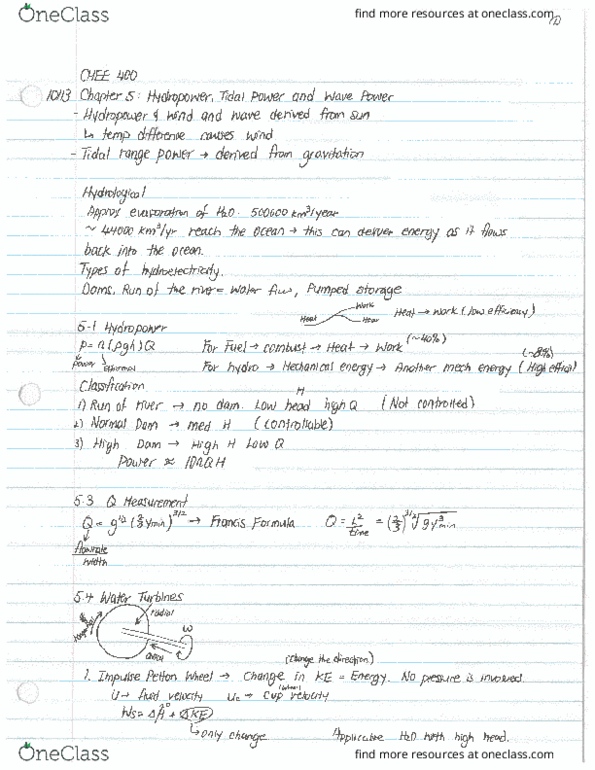 OneClass
find more resources at oneclass.com
CHEE 400
10/13 Chapter 5: Hydropower, Tidal Power and Wave Power
- Hydropower & wind and wave derived from sun
↳ temp difference causes wind
- Tidal range power → derived from gravitation
Hydrological
Approx evaporation of H2O 500000 km³/year
~ 44000 km³/yr reach the ocean → this can deliver energy as it flows
back into the ocean.
Types of hydroelectricity.
Dams, Run of the river = water flow, Pumped storage
Heat Work Heat Heat → work (low efficiency)
5-1 Hydropower
P = η(ρgh)Q For Fuel → combust → Heat → Work (~40%)
power For hydro → Mechanical energy → Another mech energy (High effici)
Classification
1) Run of River → no dam. Low head H high Q (Not controlled)
2) Normal Dam → med H (controllable)
3) High Dam → High H Low Q
Power ≈ 10ηQH
5.3 Q Measurement
Q = g^1/2 (2/3 ymin)^3/2 → Francis Formula Q = L²/time = (2/3)^3/2 √gy³min
flowrate
width
5.4 Water Turbines
radial
ω
axial
(change the direction)
1. Impulse Pelton Wheel → Change in KE = Energy. No pressure is involved.
u → fluid velocity uc → cup (wheel) velocity
Ws = ΔH⁰ + ΔKE
↳ only change Applicable H2O with high head.
OneClass
find more resources at oneclass.com